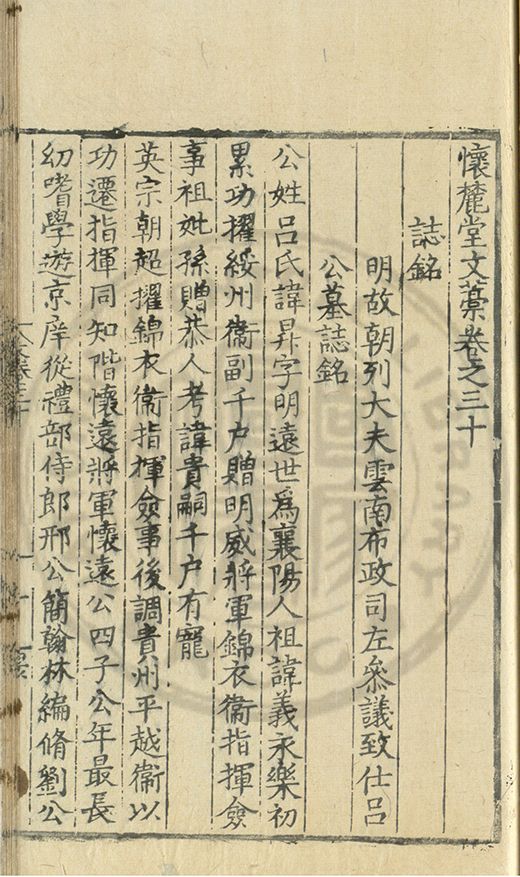 懷麓堂文藁卷之三十
誌銘
明故朝列大夫雲南布政司左叅議致仕呂
公墓誌銘
公姓呂氏諱昇字明遠世爲襄陽人祖諱義永樂初
累功擢綏州衞副千戶贈明威將軍錦衣衞指揮僉
事祖妣孫贈恭人考諱貴嗣千戶有寵
英宗朝超擢錦衣衞指揮僉事後調貴州平越衞以
功遷指揮同知階懷遠將軍懷遠公四子公年最長
幼嗜學遊京庠從禮部侍郎邢公簡翰林編脩劉公